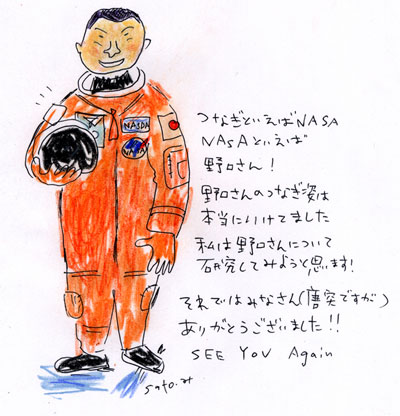 NASDA
つなぎといえばNASA
NASAといえば
野口さん！
野口さんのつなぎ姿は
本当にいけてました
私は野口さんについて
研究してみようと思います!
それではみなさん(唐突ですが)
ありがとうございました!!
SEE YOU Again
sato.m